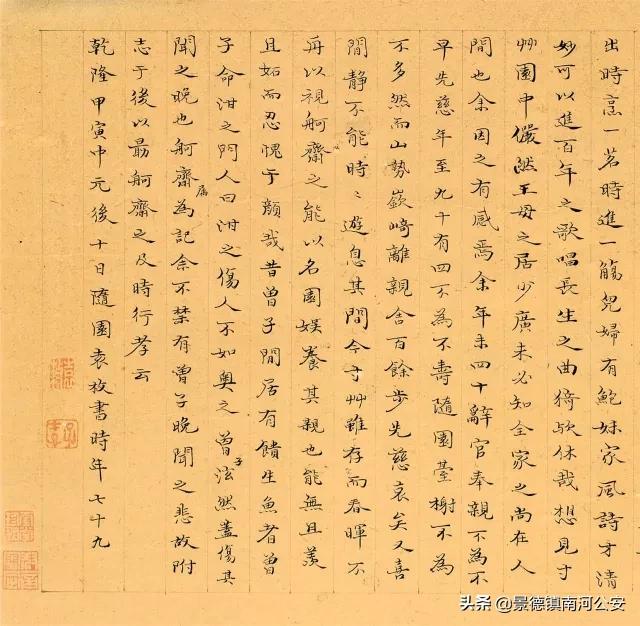 出時烹一茗時進一觴兒婦有鮑妹家風詩才清
妙可以進百年之歌唱長生之曲猗歟休哉想見寸
艸園中儼然王母之居少廣未必知全家之尚在人
間也余因之有感焉余年未四十辭官奉親不為不
早先慈年至九十有四不為不壽隨園臺榭不為
不多然而山勢嶔崎離親舍百餘步先慈衰矣又喜
閒靜不能時〻遊息其間今寸艸雖存而春暉不
再以視舸齋之能以名園娛養其親也能無且羨
且妬而忍愧于顏哉昔曾子閒居有饋生魚者曾
子命泔之門人曰泔之傷人不如奧之曾子泫然蓋傷其
聞之晚也舸齋屬為記余不禁有曾子晚聞之悲故附
志于後以勗舸齋之及時行孝云
乾隆甲寅中元後十日隨園袁枚書時年七十九
头条 @景德镇南河公安